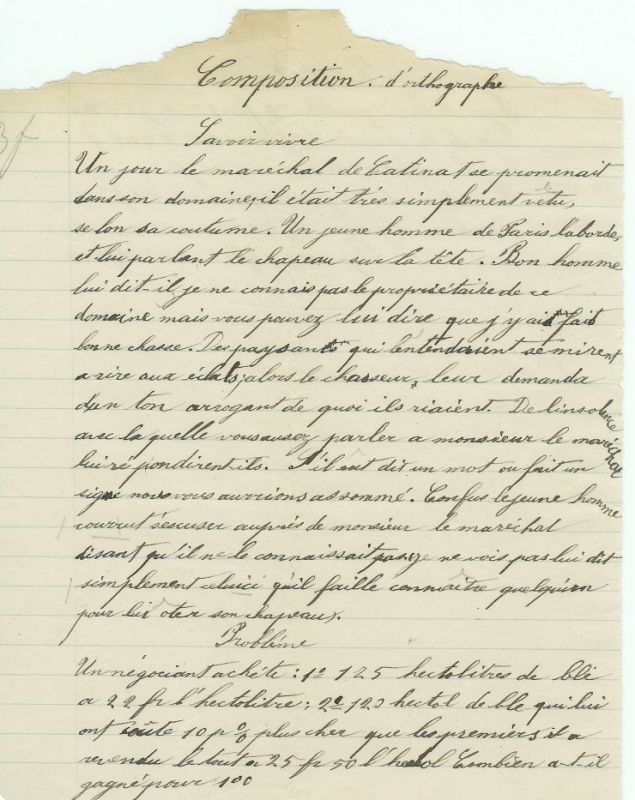 Composition. d'orthographe
Savoir vivre
Un jour le maréchal de Catinat se promenait
dans son domaine, il était trés simplement vetu,
selon sa coutume. Un jeune homme de Paris l'aborde,
et lui parlant le chapeau sur la tête. Bon homme
lui dit-il je ne connais pas le propriétaire de ce
domaine mais vous pouvez lui dire que j'y ai fait
bonne chasse. Des paysans qui l'entendaient se mirent
a rire aux éclats, alors le chasseur, leur demanda
d'un ton arrogant de quoi ils riaient. De l'insolence
avec la quelle vous ausez parler a monsieur le maréchal
lui répondirent-ils. S'il eut dit un mot ou fait un
signe nous vous aurrions assommé. Confus le jeune homme
courrut s'escuser auprés de monsieur le maréchal
disant qu'il ne le connaissait pas, je ne vois pas lui dit
simplement celuici qu'il faille connaître quelqu'un
pour lui oter son chapeau.
Problème
Un négociant achète: 1º 125 hectolitres de blé
a 22 fr l'hectolitre; 2º 120 hectol de ble qui lui
ont coûte 10 p % plus cher que les premiers il a
revendu le tout a 25 fr 50 l'hectol Combien a-t-il
gagné pour 100